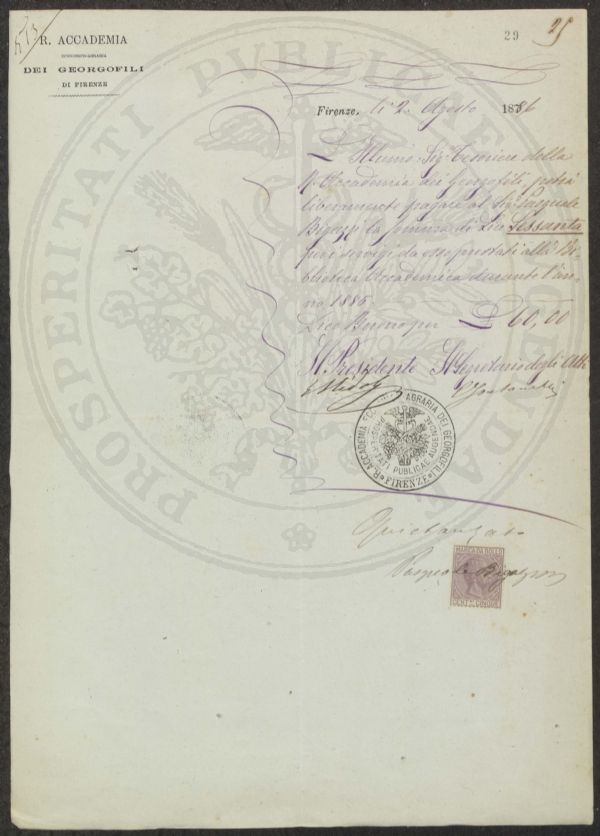 513
R. ACCADEMIA
ECONOMICO-AGRARIA
DEI GEORGOFILI
DI FIRENZE
29 25
Firenze, li 2. Agosto 1886
L' Illmo. Sig. Tesoriere della
R. Accademia dei Georgofili potrà
liberamente pagare al Sig. Pasquale
Bigazzi la somma di Lire Sessanta
per i servigi da esso prestati alla Bi-
blioteca Accademica durante l'an-
no 1885
Dico Buono per £ 60,00
Il Presidente Il Segretario degli Atti
R. ACCADEMIA ECONOMICO AGRARIA DEI GEORGOFILI
PROSPERITATI PUBLICAE AUGENDAE
FIRENZE
Quietanzato
MARCA DA BOLLO
Pasquale Bigazzi
CENT. MI CINQUE
PROSPERITATI PUBLICAE